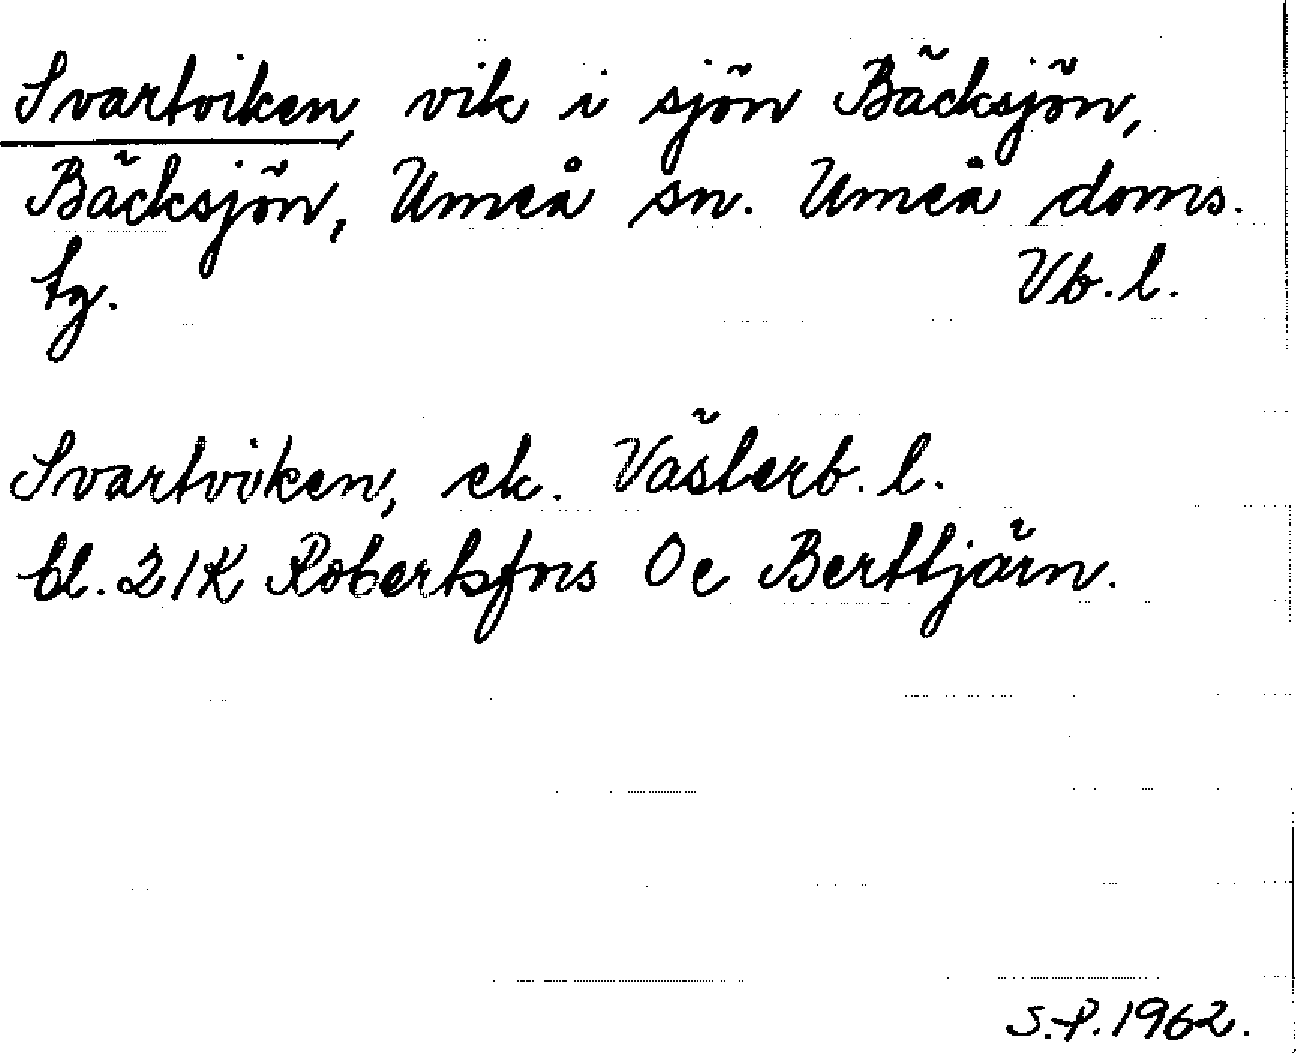 Svartviken, vik i sjön Bäcksjön,
Bäcksjön, Umeå sn. Umeå doms.
tg. Vb. l.
Svartviken, ek. Västerb. l.
bl. 21K Robertsfors Oe Berttjärn.
S.P. 1962.